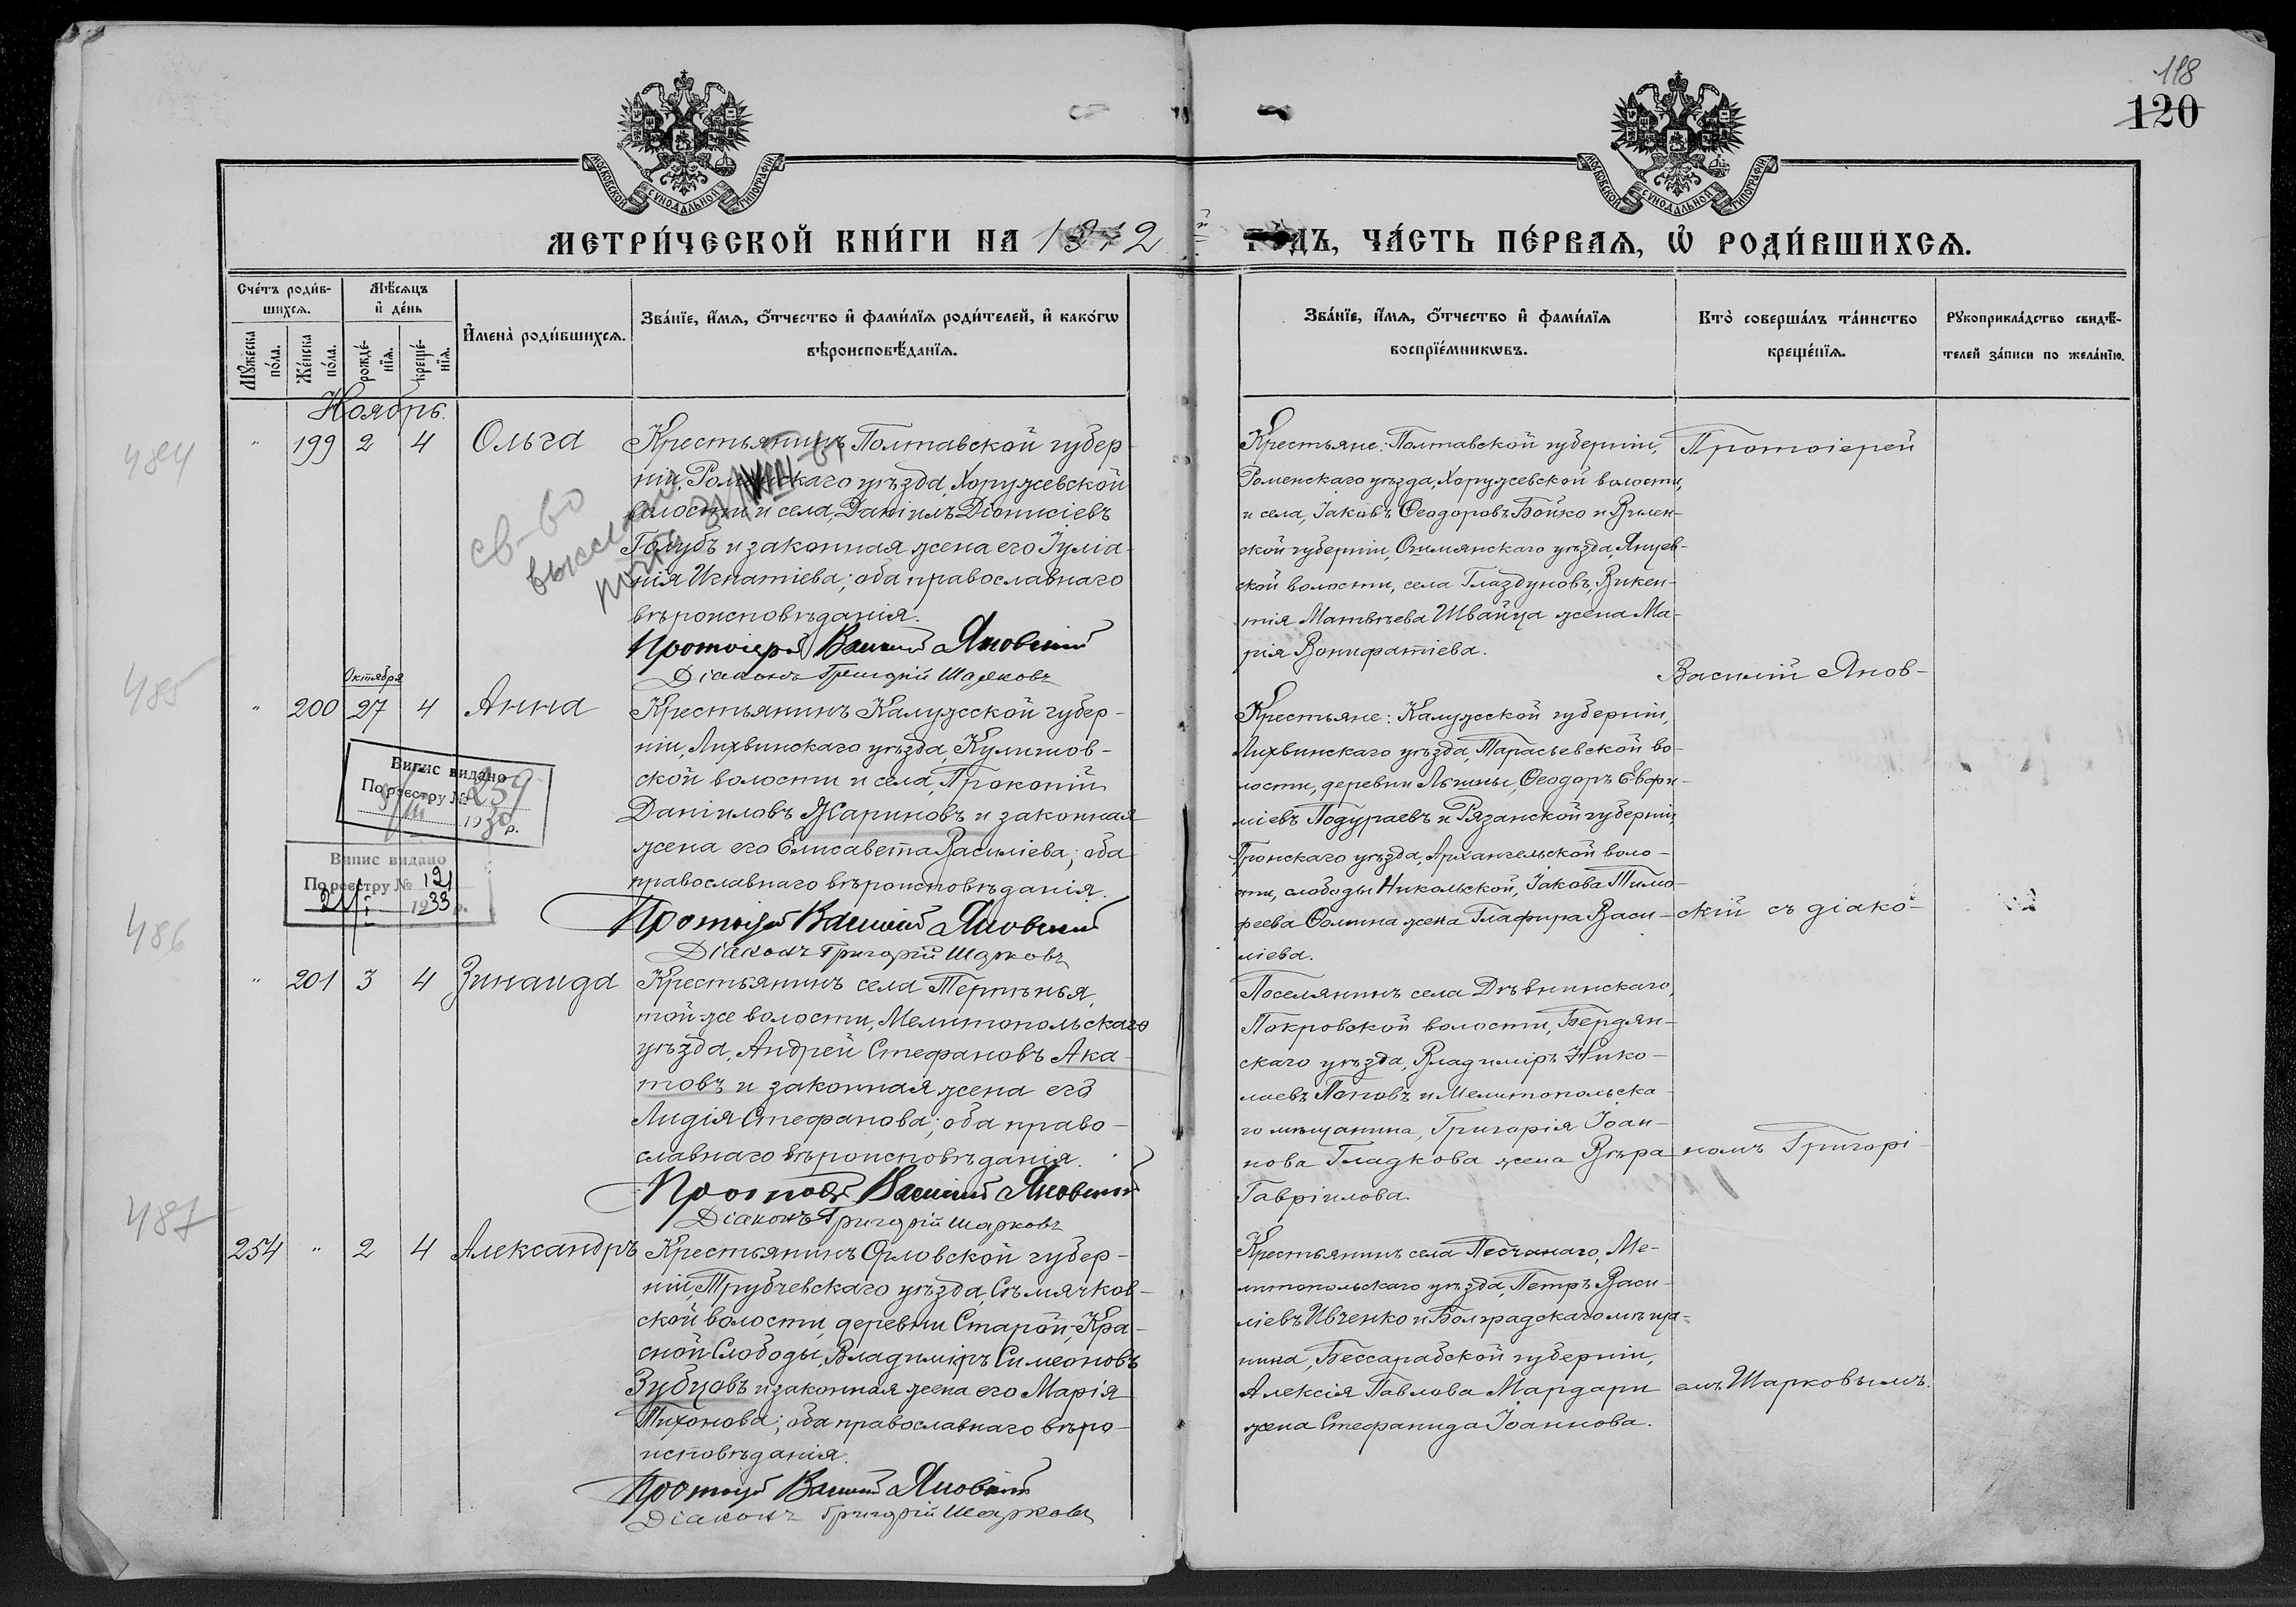 118
120
МОСКОВСКОЙ СѴНОДАЛЬНОЙ ТИПОГРАФІИ
МОСКОВСКОЙ СѴНОДАЛЬНОЙ ТИПОГРАФІИ
МЕТРИ́ЧЕСКОЙ КНИ́ГИ НА 1912 й ГОДЪ, ЧА́СТЬ ПЕ́РВАѦ, Ѡ҆ РОДИ́ВШИХСѦ.
Сче́тъ роди́в-
шихсѧ.
Мꙋ́жеска по́ла.
Же́нска по́ла.
Мѣ́сѧцъ
и҆ де́нь
рожде́-
нїѧ.
креще́-
нїѧ.
И҆мена̀ роди́вшихсѧ.
Зва́нїе, и҆́мѧ, ѻ҆́тчество и҆ фами́лїѧ роди́телей, и҆ како́гѡ
вѣроисповѣ́данїѧ.
Зва́нїе, и҆́мѧ, ѻ҆́тчество и҆ фами́лїѧ
воспрїе́мникѡвъ.
Кто̀ соверша́лъ та́инство
креще́нїѧ.
Рꙋкоприкла́дство свидѣ́-
телей за́писи по жела́нїю.
Ноябрь.
484
" 199 2 4 Ольга
Крестьянинъ Полтавской губер-
ніи, Роменскаго уѣзда, Хоружевской
волости и села, Даніилъ Діонисіевъ
Голубъ и законная жена его Іуліа-
нія Игнатіева; оба православнаго
вѣроисповѣданія.
Протоіерей Василій Яновскій
Діаконъ Григорій Шарковъ
св-во
Крестьяне: Полтавской губерніи,
Роменскаго уѣзда, Хоружевской волости,
и села, Іаковъ Ѳеодоровъ Бойко и Вилен-
ской губерніи, Ошмянскаго уѣзда, Янцев-
ской волости, села Глаздуновъ, Викен-
тія Матвѣева Швайца жена Ма-
рія Вонифатіева.
Протоіерей
Василій Янов-
485
Октября
" 200 27 4 Анна
Крестьянинъ Калужской губер-
ніи, Лихвинскаго уѣзда, Кулишов-
ской волости и села, Прокопій
Даніиловъ Жариновъ и законная
жена его Елисавета Василіева; оба
православнаго вѣроисповѣданія.
Протоіерей Василій Яновскій
Діаконъ Григорій Шарковъ
Випис видано
По реєстру № 259
3/III 1930 р.
Випис видано
По реєстру № 12
21/I 1933 р.
Крестьяне: Калужской губерніи,
Лихвинскаго уѣзда, Тарасьевской во-
лости, деревни Лѣчины, Ѳеодоръ Евфи-
міевъ Подураевъ и Рязанской губерніи,
Пронскаго уѣзда, Архангельской воло-
сти, слободы Никольской, Іакова Тимо-
феева Ѳомина жена Глафира Васи-
ліева.
скій съ діако-
486
" 201 3 4 Зинаида
Крестьянинъ села Терпѣнья,
той же волости, Мелитопольскаго
уѣзда, Андрей Стефановъ Ака-
товъ и законная жена его
Лидія Стефанова; оба право-
славнаго вѣроисповѣданія.
Протоіерей Василій Яновскій
Діаконъ Григорій Шарковъ
Поселянинъ села Дѣвнинскаго,
Покровской волости, Бердян-
скаго уѣзда, Владиміръ Нико-
лаевъ Поповъ и Мелитопольска-
го мѣщанина, Григорія Іоан-
нова Гладкова жена Вѣра
Гавріилова.
номъ Григорі-
487
254 " 2 4 Александръ
Крестьянинъ Орловской губер-
ніи, Трубчевскаго уѣзда, Сѣмячков-
ской волости, деревни Старой-Кра-
сной-Слободы, Владиміръ Симеоновъ
Зубцовъ и законная жена его Марія
Тихонова; оба православнаго вѣро-
исповѣданія.
Протоіерей Василій Яновскій
Діаконъ Григорій Шарковъ
Крестьянинъ села Песчанаго, Ме-
литопольскаго уѣзда, Петръ Васи-
ліевъ Ивченко и Болградскаго мѣща-
нина, Бессарабской губерніи,
Алексія Павлова Мардари
жена Стефанида Іоаннова.
емъ Шарковымъ.